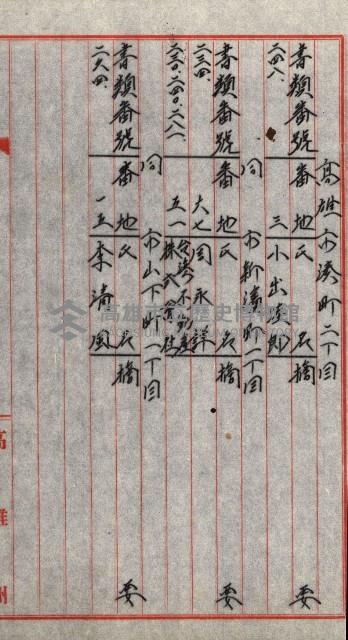 高雄市湊町二丁目
書類番號 番地 氏名 摘要
二四八、 三 小出
同 市新濱町一丁目
書類番號 番地 氏名 摘要
二三四、 大七 周永祥
二三〇、二四〇、二八八 五一 台湾不動産株式会社
同 市山下町一丁目
書類番號 番地 氏名 摘要
二六四、 一五 李清風
高雄州
高雄市立歷史博物館